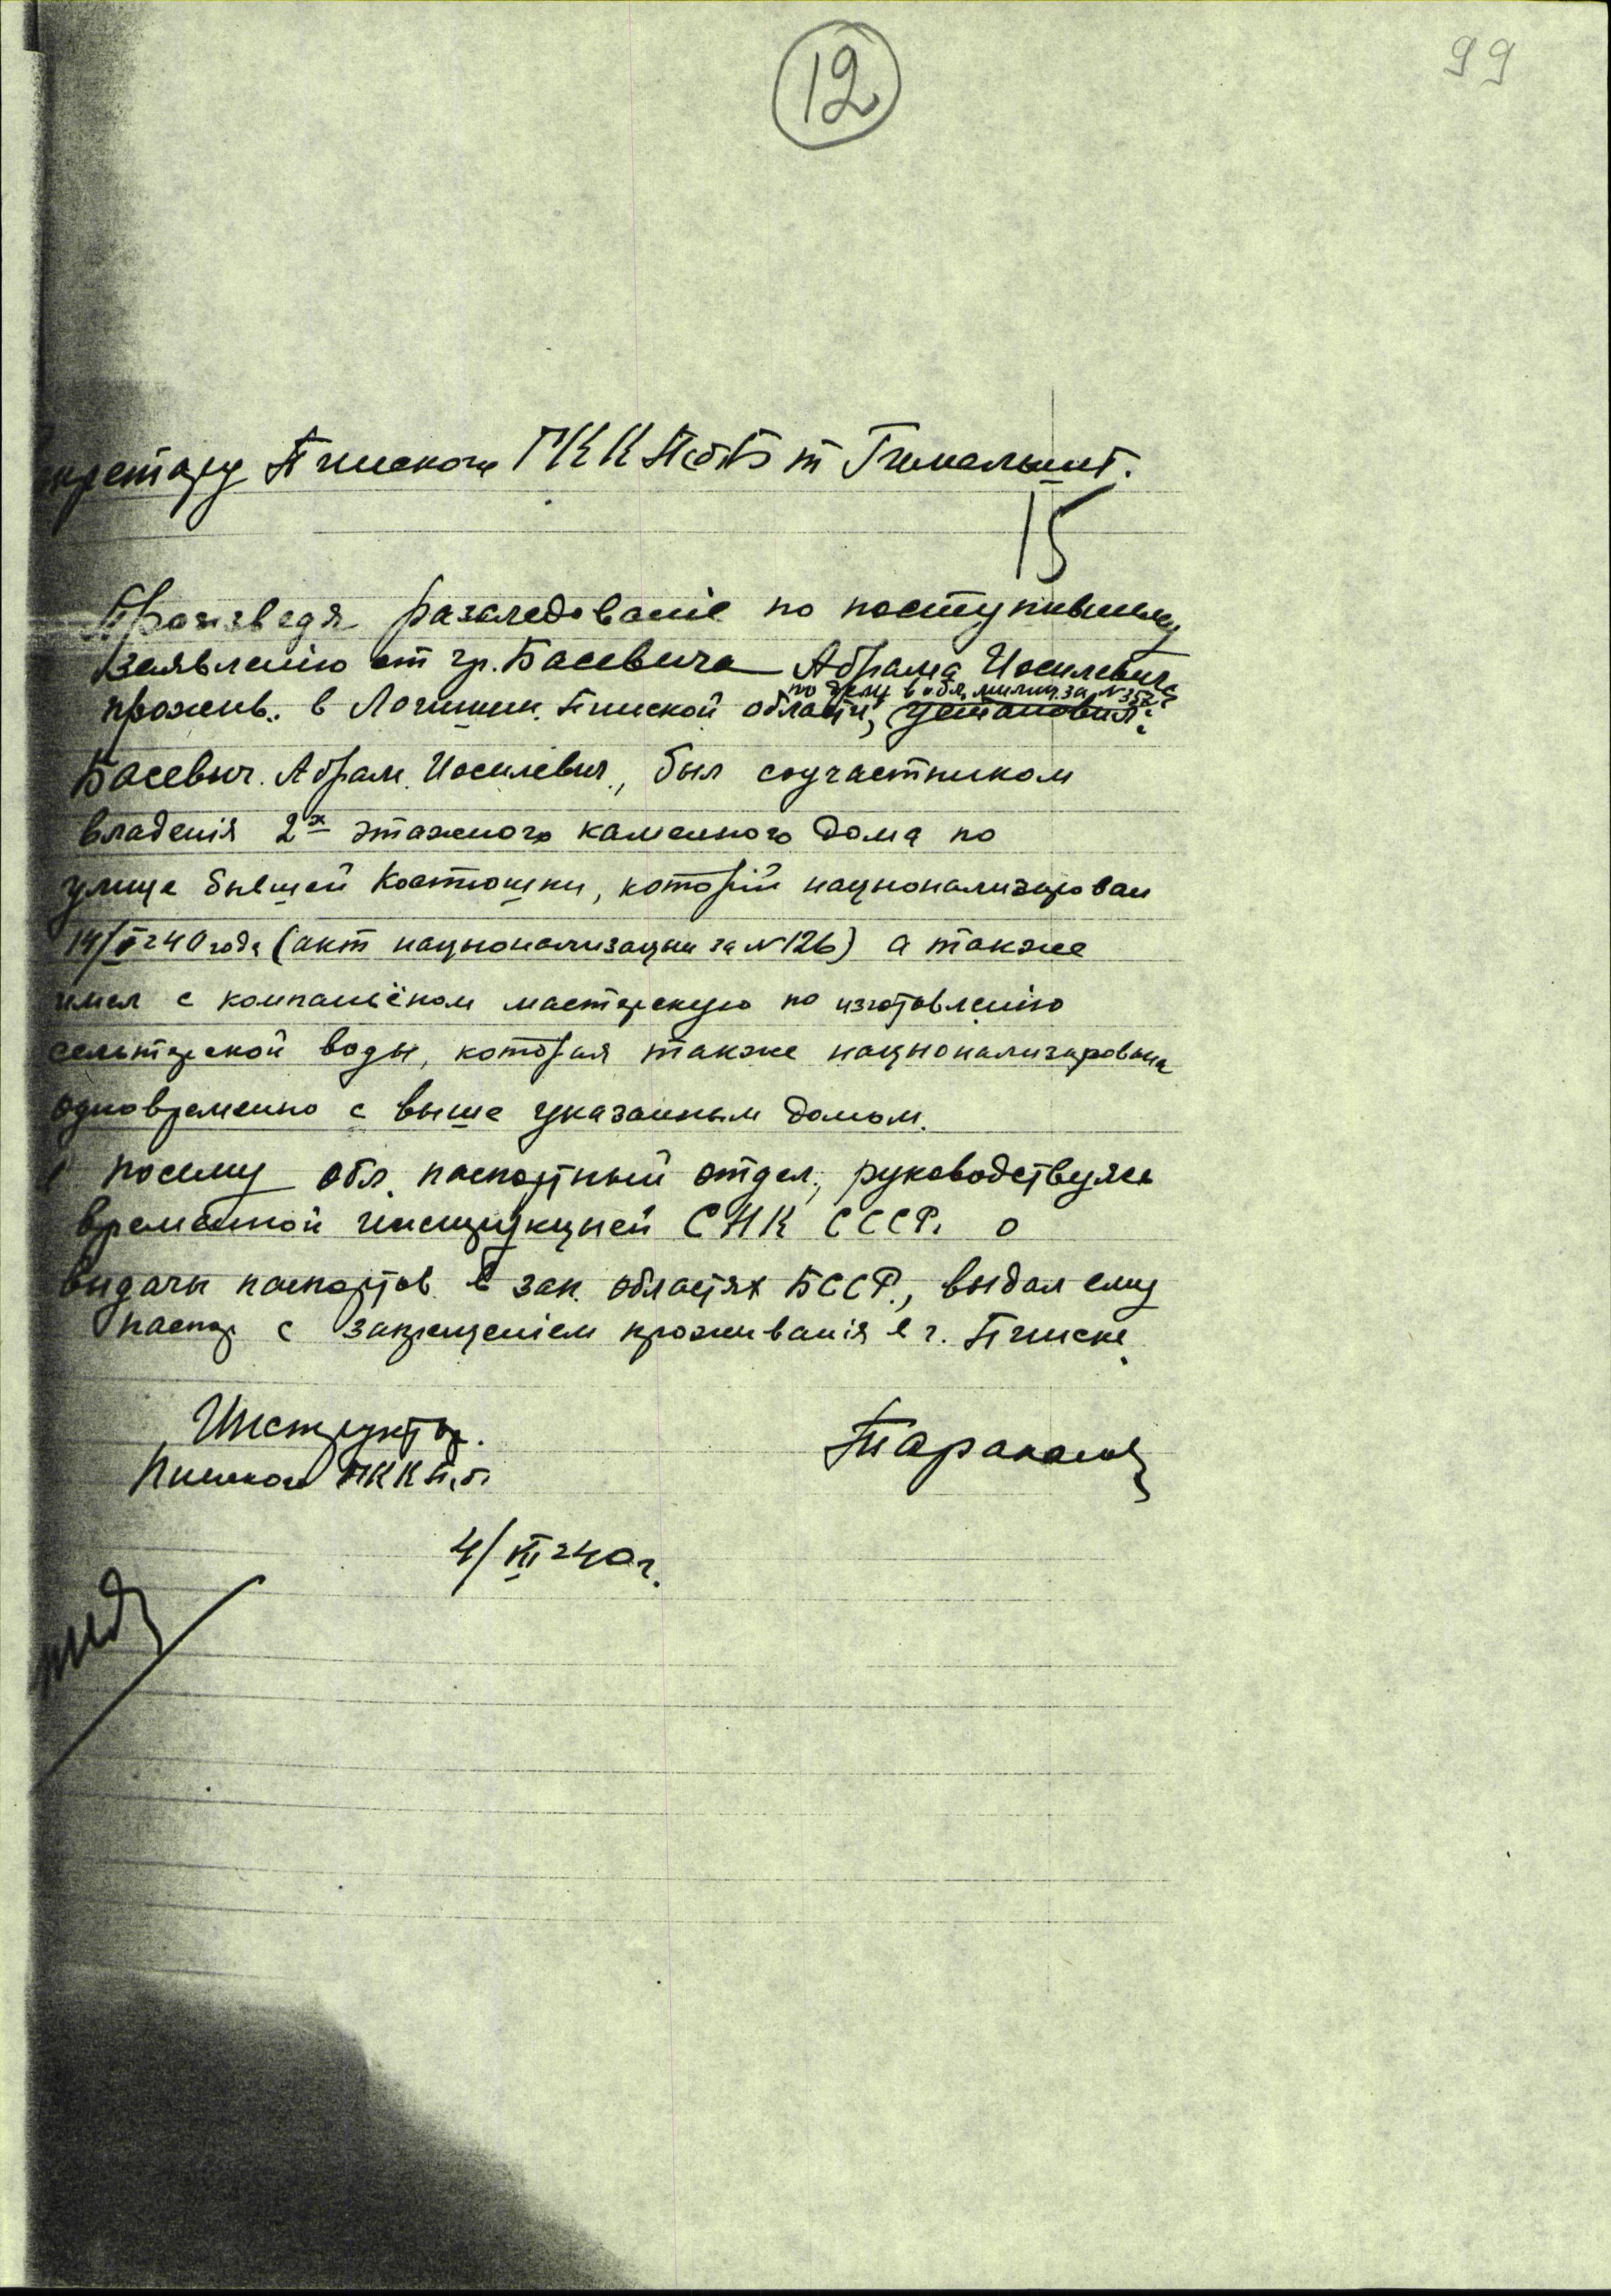 12
99
Секретарю Пинского ГКК П(б)Б т Гимельшт.
15
Произведя разследованіе по поступившему
заявленію от гр. Басевича Абрама Иоселевича
по делу в обл. милиц. за N
прожив. в Логишин. Пинской области, установил:
Басевич. Абрам. Иоселевич., был соучастником
владенія 2х этажного каменного дома по
улице бывшей Костюшки, которій национализирован
14/I 240 года (акт национализации за N 126) а также
имел с компаньёном мастерскую по изготовленію
сельтерской воды, которая также национализирована
одновременно с выше указанным домом.
посему обл. паспортный отдел, руководствуясь
временной инструкцией СНК СССР. о
выдачи паспортов в зап. областях БССР., выдал ему
паспор с запрещеніем проживанія в г. Пинске.
Инструктор.
Пинского ГКК П.б.
4/III 240 г.